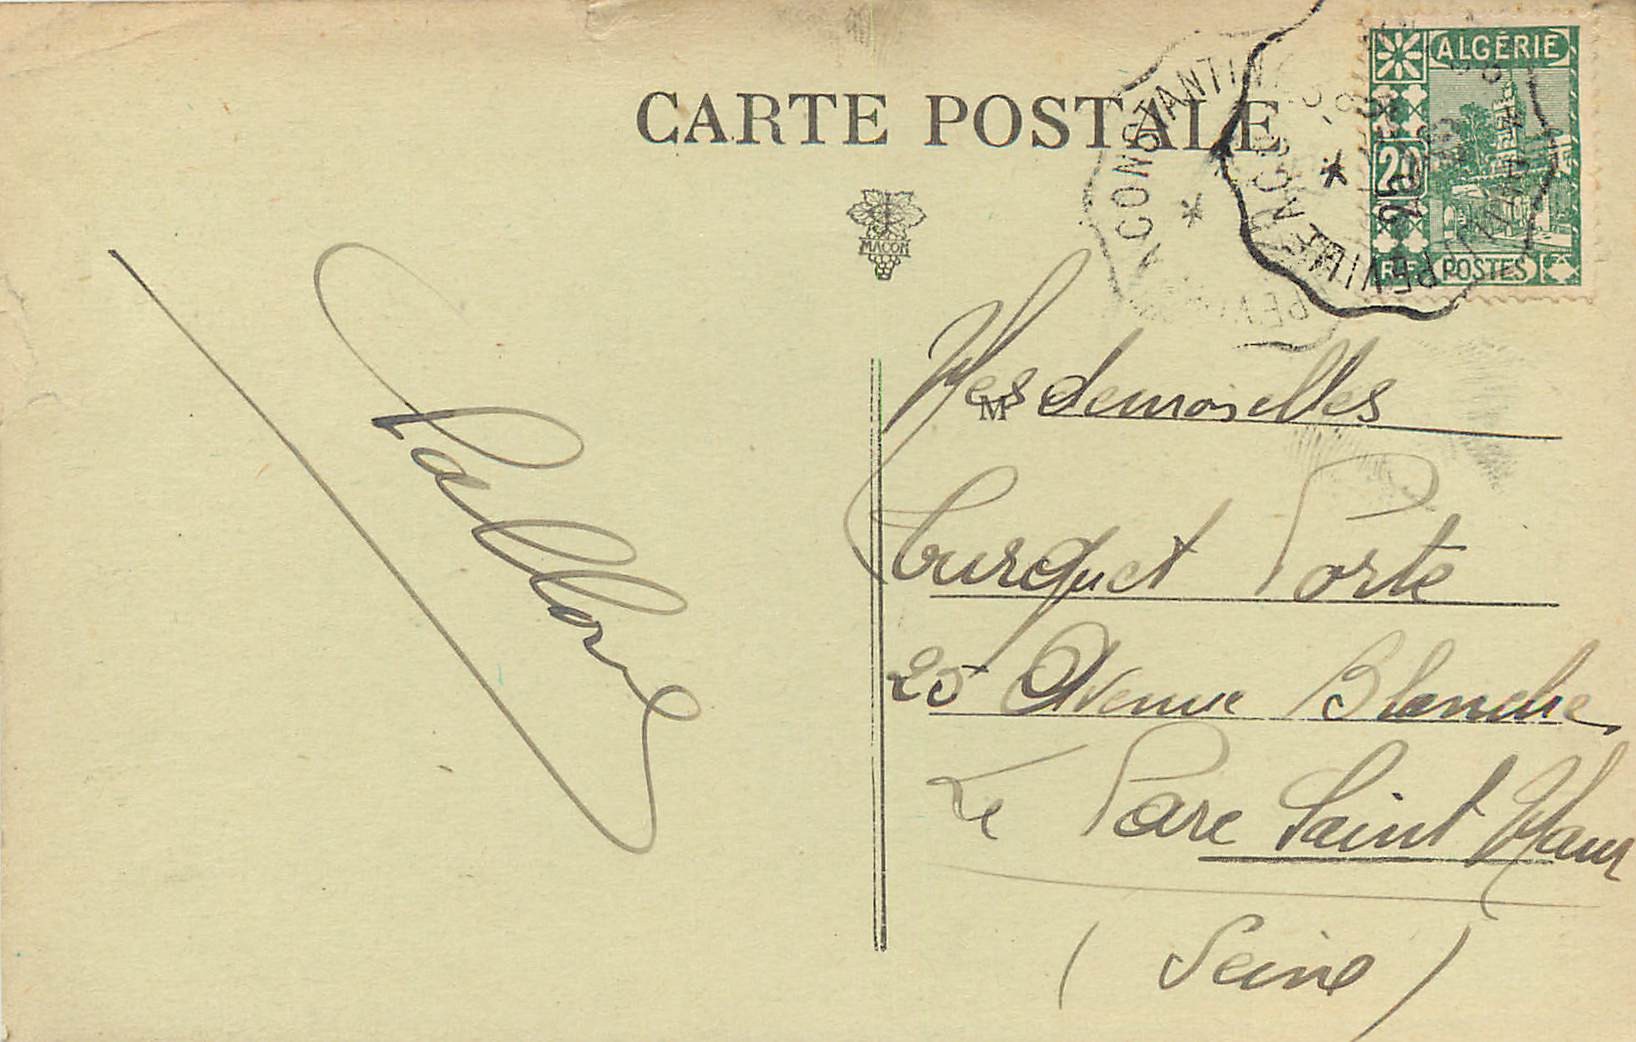 CARTE POSTALE
MACON
ALGÉRIE
20
R.F. POSTES
CONSTANTINE A
PHILIPPEVILLE
Mesdemoiselles
M
Porte
25 Avenue Blanche
Le Parc Saint Maur
(Seine)